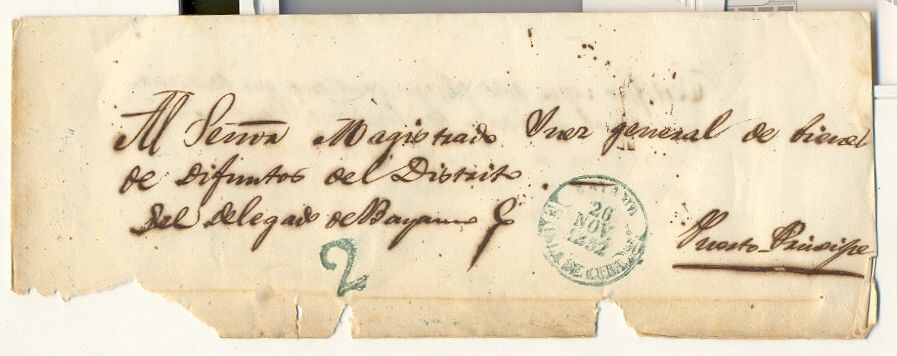 Al Señor Magistrado Juez general de bienes
de difuntos del Distrito
Del delegado de Bayamo
Puerto-Principe
26
NOV
ISLA DE CUBA
2